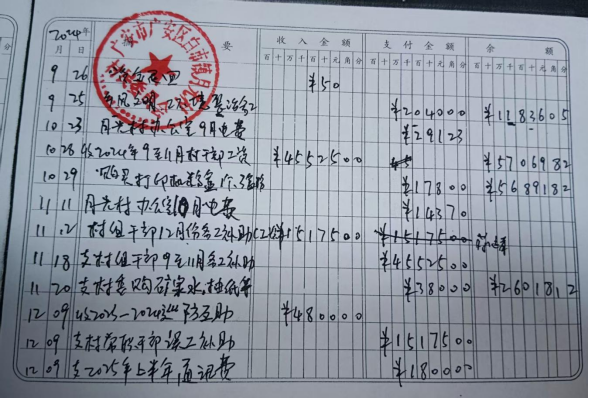 2024年 摘要 收入金额 支付金额 余额
月 日 百十万千百十元角分 百十万千百十元角分 百十万千百十元角分
广安市广安区白市镇月光村
9 26 ¥50
9 25 ¥204000 ¥1183605
10 23 月光村办公室9月电费 ¥29123
10 28 收2024年9至11月村干部工资 ¥4552500 ¥5706982
10 29 购买打印机 ¥17800 ¥5689182
11 11 月光村办公室10月电费 ¥14370
11 12 村组干部12月份务工补助 ¥1517500 ¥1517500
11 18 支村组干部9至11月务工补助 ¥4552500
11 20 支村委购矿泉水,抽纸等 ¥38000 ¥2601812
12 09 收2023-2024 防互助 ¥480000
12 09 支村常职干部误工补助 ¥1517500
12 09 支2025年上半年通讯费 ¥180000